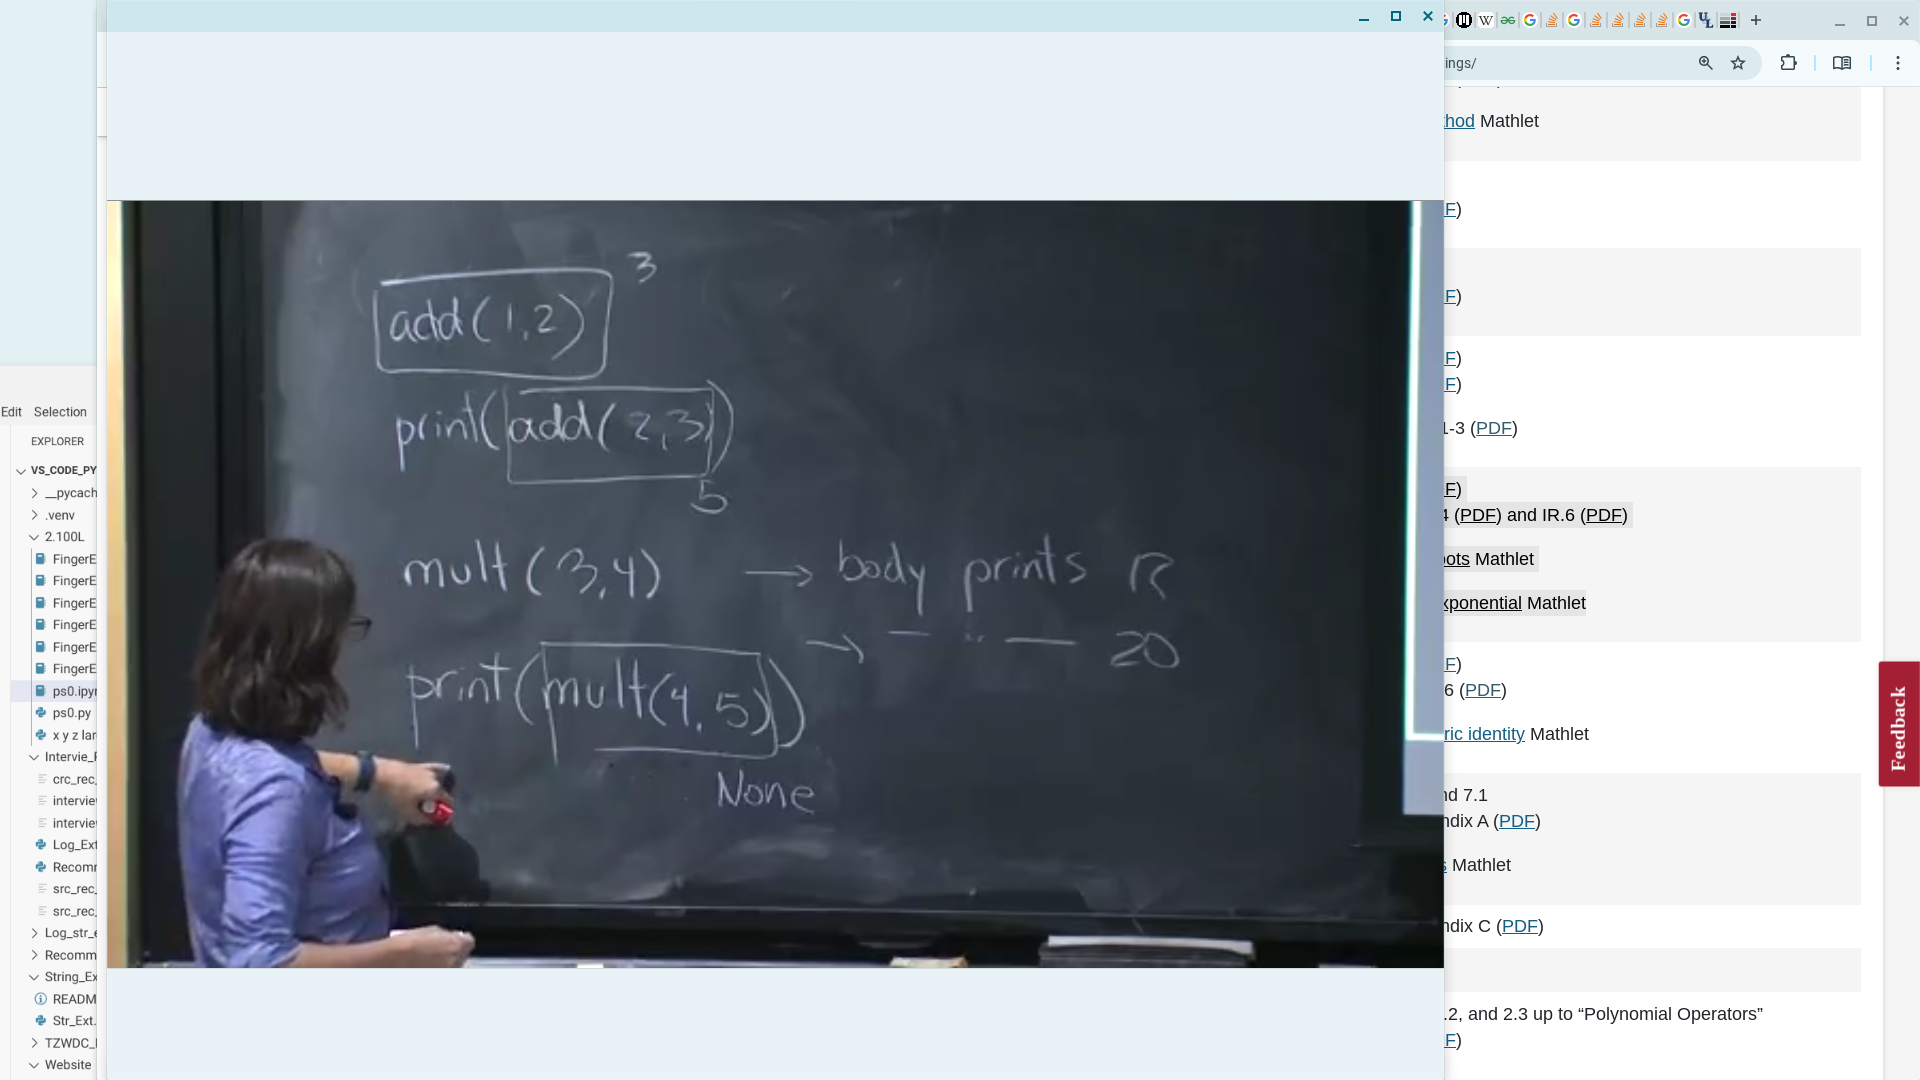 ings/
Edit Selection
EXPLORER
VS_CODE_PY
__pycach
.venv
2.100L
FingerE
FingerE
FingerE
FingerE
FingerE
FingerE
ps0.ipyn
ps0.py
x y z lar
Intervie_F
crc_rec_
interviev
interviev
Log_Ext
Recomm
src_rec_
src_rec_
Log_str_e
Recomm
String_Ex
READM
Str_Ext.
TZWDC_
Website
add(1,2) 3
print(add(2,3))
5
mult(3,4) → body prints 12
print(mult(4,5)) → — " — 20
None
thod Mathlet
F)
F)
F)
F)
1-3 (PDF)
F)
4 (PDF) and IR.6 (PDF)
oots Mathlet
xponential Mathlet
F)
6 (PDF)
ric identity Mathlet
nd 7.1
ndix A (PDF)
s Mathlet
ndix C (PDF)
.2, and 2.3 up to “Polynomial Operators”
F)
Feedback